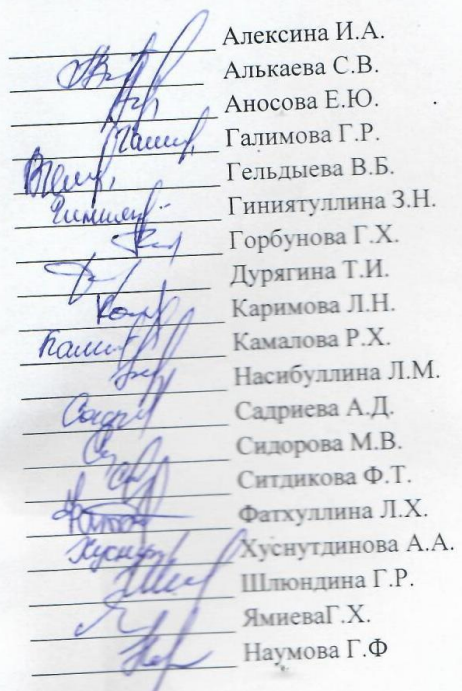 Алексина И.А.
Алькаева С.В.
Аносова Е.Ю.
Галимова Г.Р.
Гельдыева В.Б.
Гиниятуллина З.Н.
Горбунова Г.Х.
Дурягина Т.И.
Каримова Л.Н.
Камалова Р.Х.
Насибуллина Л.М.
Садриева А.Д.
Сидорова М.В.
Ситдикова Ф.Т.
Фатхуллина Л.Х.
Хуснутдинова А.А.
Шлюндина Г.Р.
ЯмиеваГ.Х.
Наумова Г.Ф